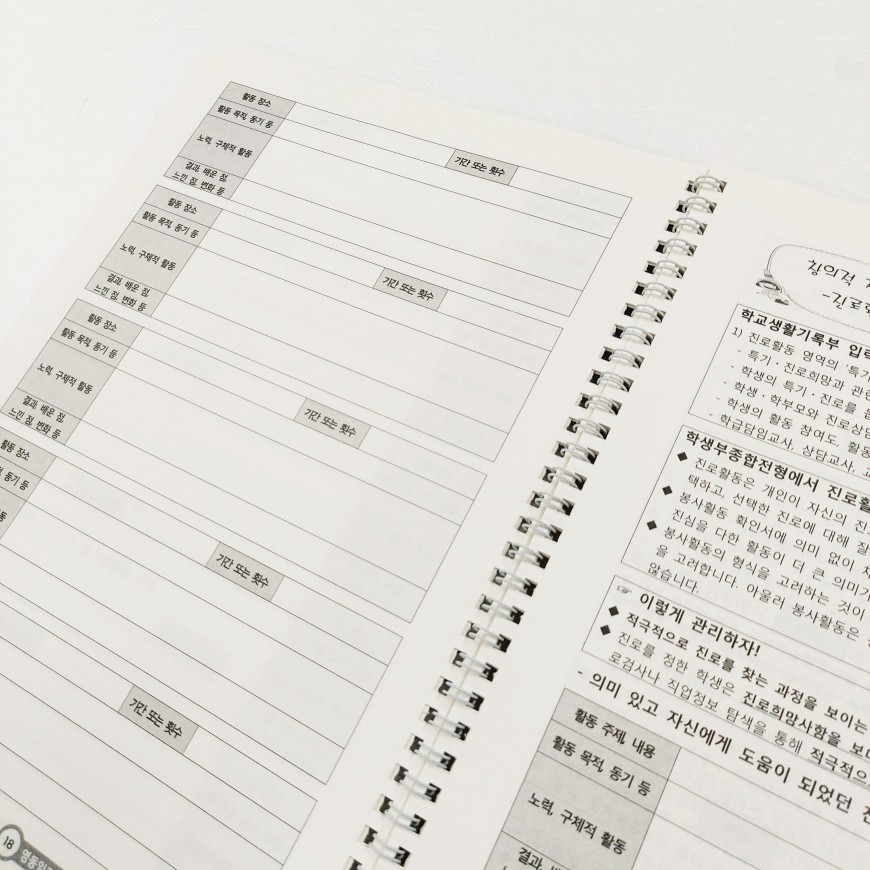 활동 장소
활동 목적, 동기 등
기간 또는 횟수
노력, 구체적 활동
결과, 배운 점,
느낀 점, 변화 등
활동 장소
활동 목적, 동기 등
기간 또는 횟수
노력, 구체적 활동
결과, 배운 점,
느낀 점, 변화 등
활동 장소
활동 목적, 동기 등
기간 또는 횟수
노력, 구체적 활동
결과, 배운 점,
느낀 점, 변화 등
활동 장소
목적, 동기 등
기간 또는 횟수
활동
기간 또는 횟수
18
창의적
-진로
학교생활기록부 입력
1) 진로활동 영역의 '특기
- 특기·진로희망과 관련
- 학생의 특기·진로를
- 학생·학부모와 진로상담
- 학생의 활동 참여도, 활동
- 학급담임교사, 상담교사,
학생부종합전형에서 진로활
◆ 진로활동은 개인이 자신의 진
택하고, 선택한 진로에 대해 잘
◆ 봉사활동 확인서에 의미 없이
진심을 다한 활동이 더 큰 의미가
◆ 봉사활동의 형식을 고려하는 것이
을 고려합니다. 아울러 봉사활동은
않습니다.
☞ 이렇게 관리하자!
◆ 적극적으로 진로를 찾는 과정을 보이는
◆ 진로를 정한 학생은 진로희망사항을 보
로검사나 직업정보 탐색을 통해 적극적으
- 의미 있고 자신에게 도움이 되었던 진
활동 주제, 내용
활동 목적, 동기 등
노력, 구체적 활동
결과, 배